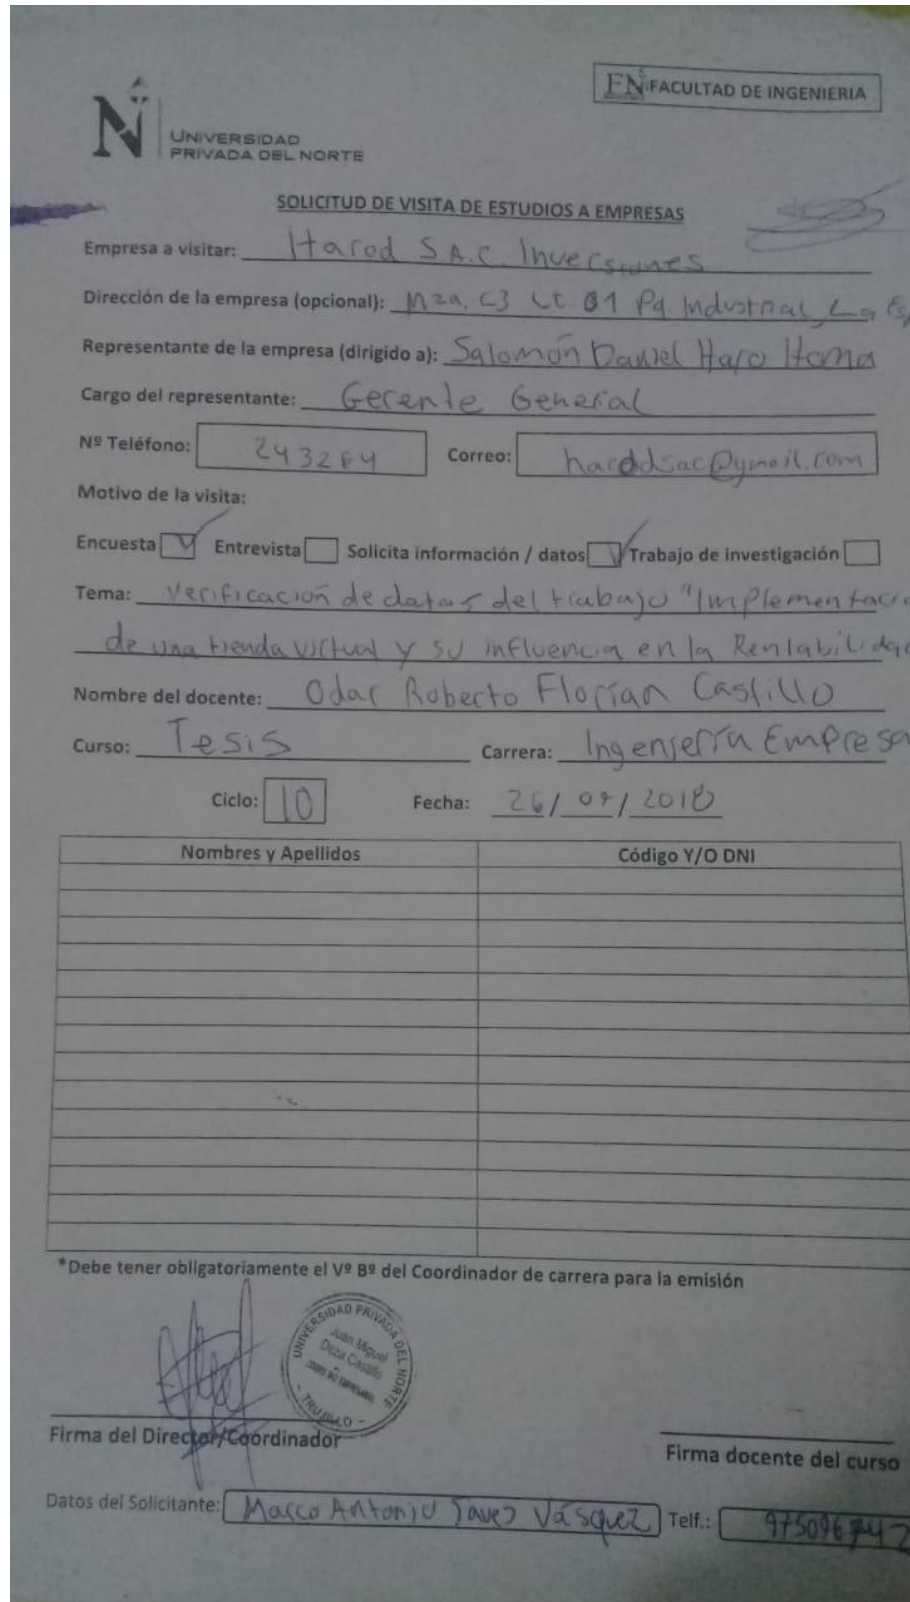 N
UNIVERSIDAD
PRIVADA DEL NORTE
FN FACULTAD DE INGENIERIA
SOLICITUD DE VISITA DE ESTUDIOS A EMPRESAS
Empresa a visitar: Harod S.A.C. Inversiones
Dirección de la empresa (opcional): Mza. C3 Lt. 01 Pq. Industrial, La Es
Representante de la empresa (dirigido a): Salomón Daniel Haro
Cargo del representante: Gerente General
Nº Teléfono: Correo:
Motivo de la visita:
Encuesta Entrevista Solicita información / datos Trabajo de investigación
Tema: Verificación de datos del trabajo "Implementació
de una tienda virtual y su influencia en la Rentabilidad
Nombre del docente: Odar Roberto Florían Castillo
Curso: Tesis Carrera: Ingeniería Empresa
Ciclo: 10 Fecha: 26/ /2018
Nombres y Apellidos Código Y/O DNI
*Debe tener obligatoriamente el Vº Bº del Coordinador de carrera para la emisión
UNIVERSIDAD PRIVADA DEL NORTE
Juan Miguel
Deza Castillo
- TRUJILLO -
Firma del Director/Coordinador
Firma docente del curso
Datos del Solicitante: Marco Antonio Vásquez Telf.: